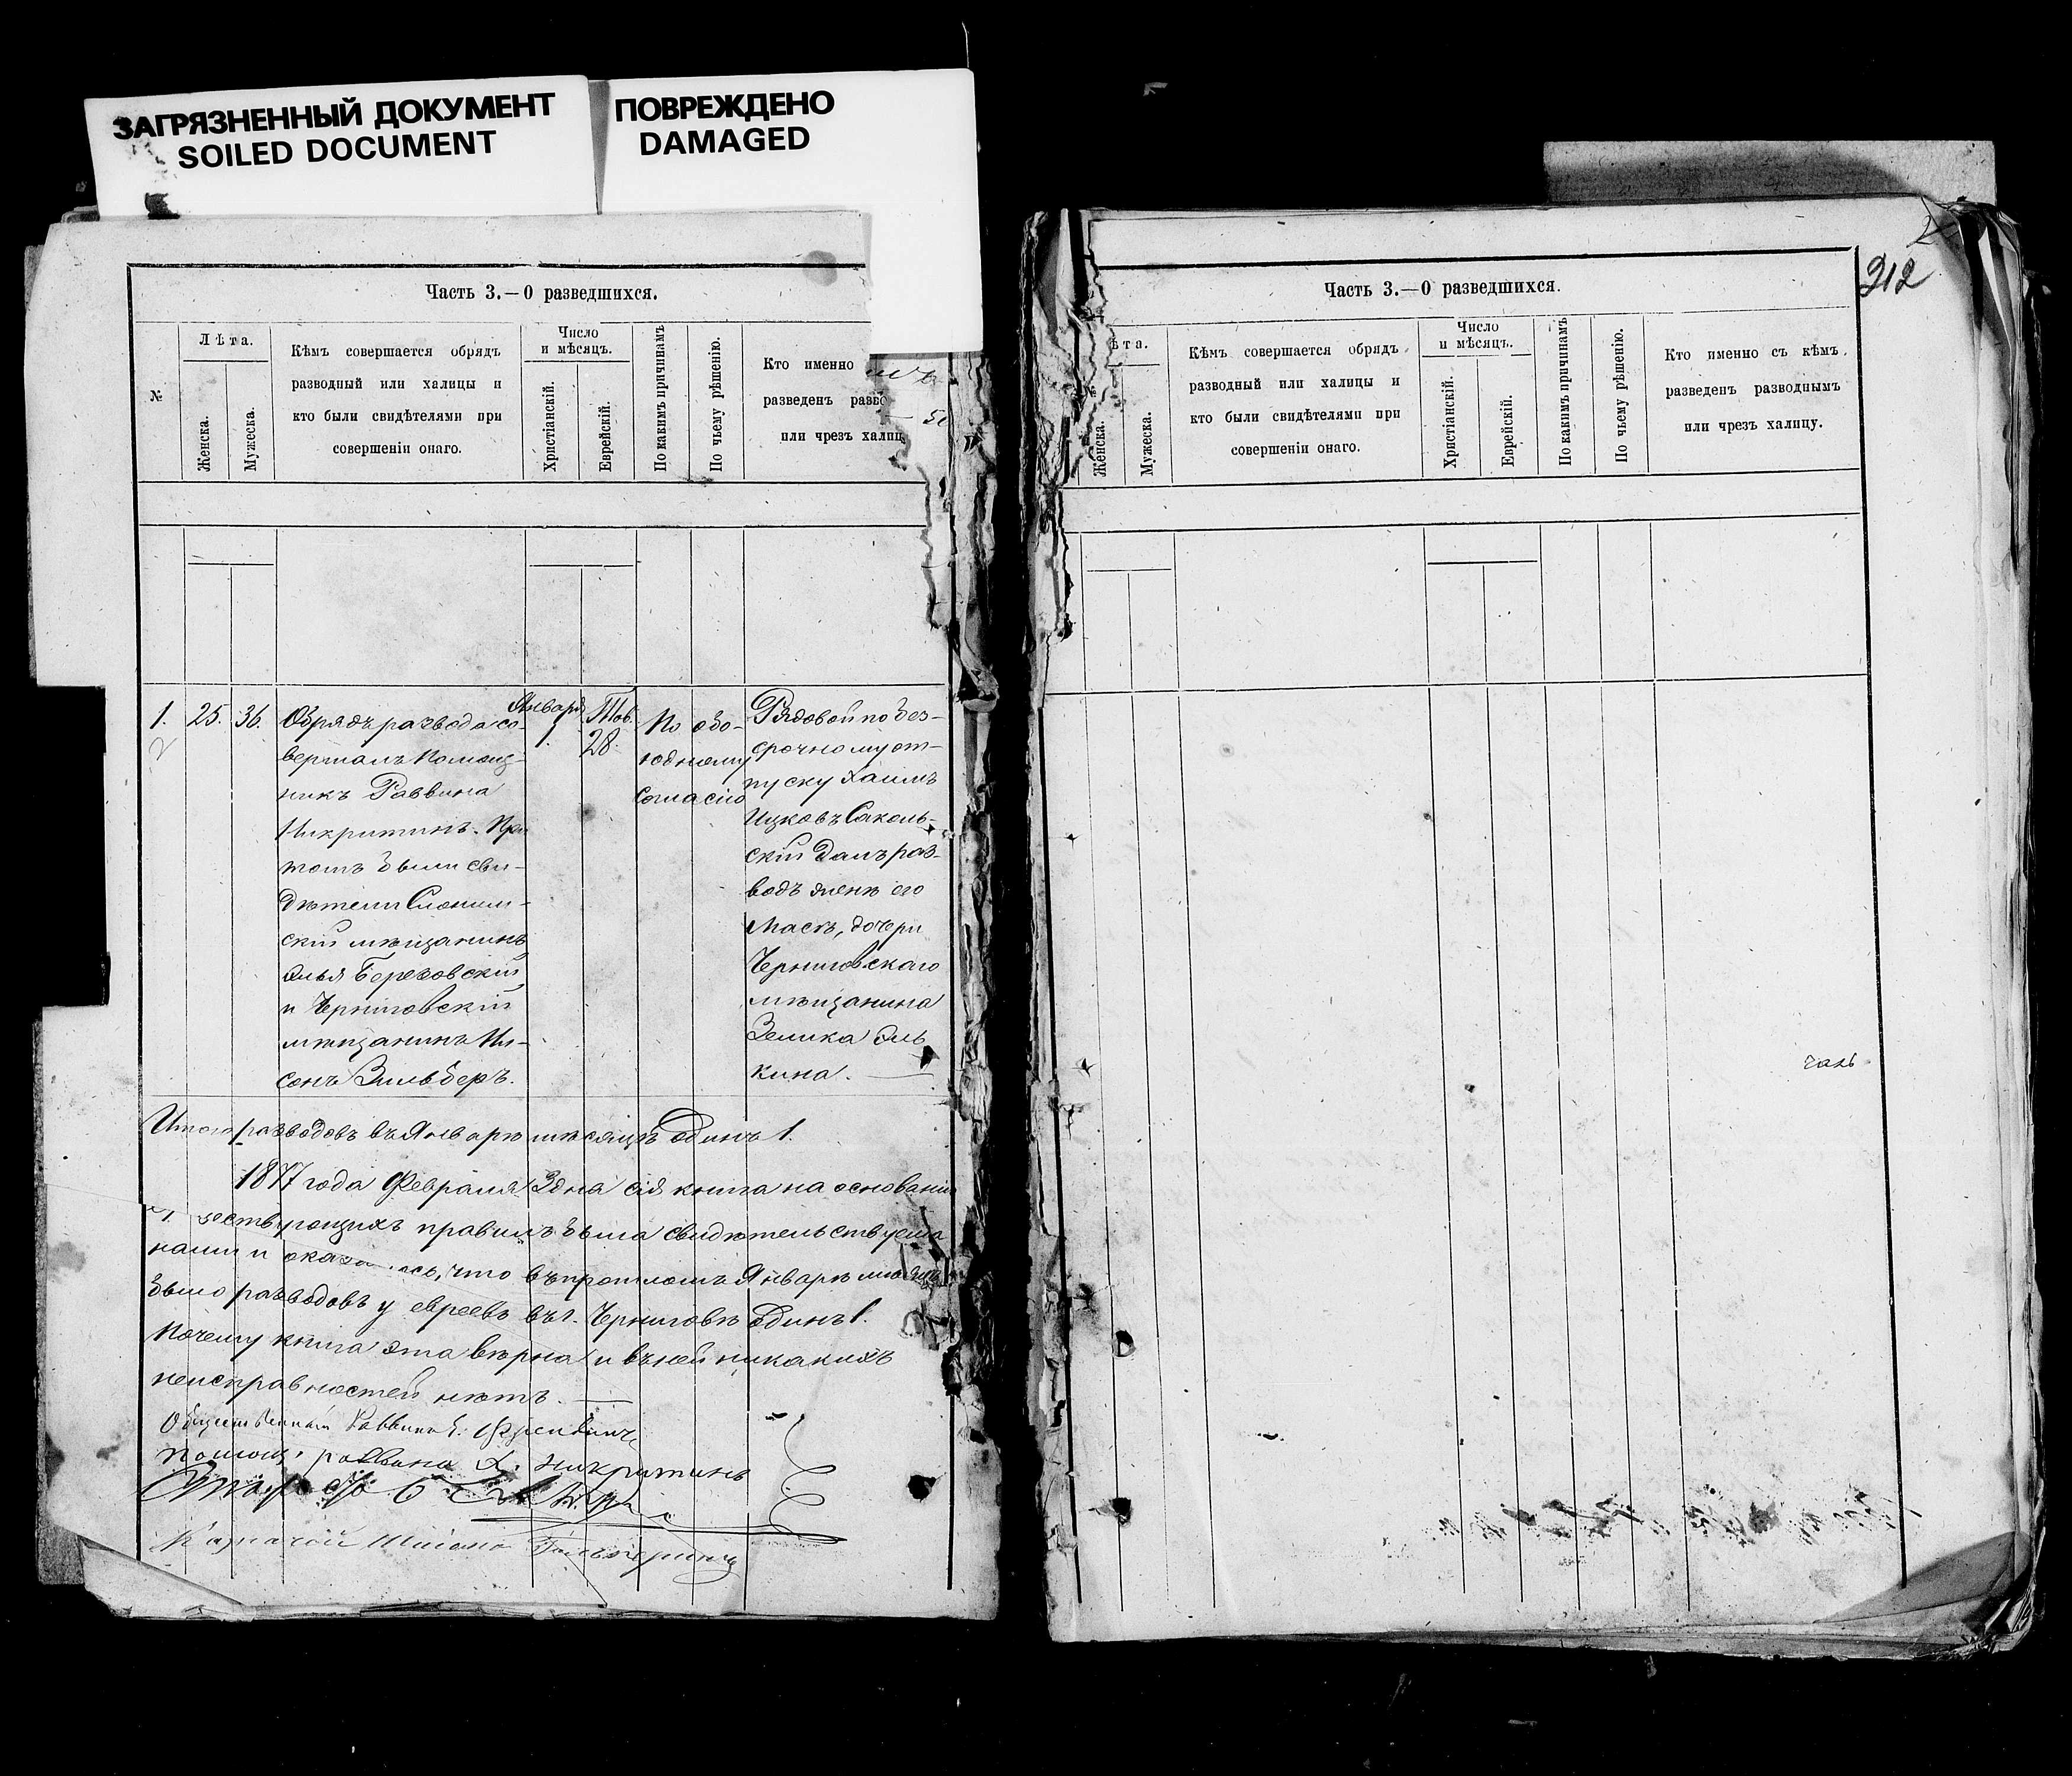 ЗАГРЯЗНЕННЫЙ ДОКУМЕНТ
SOILED DOCUMENT
ПОВРЕЖДЕНО
DAMAGED
Часть 3.—О разведшихся.
№
Лѣта.
Женска.
Мужеска.
Кѣмъ совершается обрядъ
разводный или халицы и
кто были свидѣтелями при
совершеніи онаго.
Число
и мѣсяцъ.
Христіанскій.
Еврейскій.
По какимъ причинамъ
По чьему рѣшенію.
Кто именно
разведенъ разво
или чрезъ халиц
1. 25. 36.
Обрядъ развода со-
вершалъ Помощ-
никъ Раввина
Никритинъ. При
томъ были сви-
дѣтели Слоним-
скій мѣщанинъ
Элья Березовскій
и Черниговскій
мѣщанинъ Ни-
сонъ Зильберъ.
Января
1.
Тов.
28.
По обо-
юдному
согласію
Рядовой по без-
срочному от-
пуску Хаимъ
Ицковъ Саколь-
скій Далъ раз-
водъ женѣ его
Масѣ, дочери
Черниговскаго
мѣщанина
Зелика Эль
кина.
Итого разводовъ въ Январѣ мѣсяцѣ Одинъ 1.
1877 года Февраля 3 дня сія книга на основаніи
правилъ была свидѣтельствуема
нами и что въ прошломъ Январѣ мѣсяцѣ
было разводовъ у евреевъ въ г. Черниговѣ Одинъ 1.
Почему книга эта вѣрна и въ ней никакихъ
неисправностей нѣтъ.
Общественный Раввинъ
Помощ. раввина Х. Никритинъ
Казначей
Часть 3.—О разведшихся.
312
№
ѣта.
Женска.
Мужеска.
Кѣмъ совершается обрядъ
разводный или халицы и
кто были свидѣтелями при
совершеніи онаго.
Число
и мѣсяцъ.
Христіанскій.
Еврейскій.
По какимъ причинамъ
По чьему рѣшенію.
Кто именно съ кѣмъ
разведенъ разводнымъ
или чрезъ халицу.